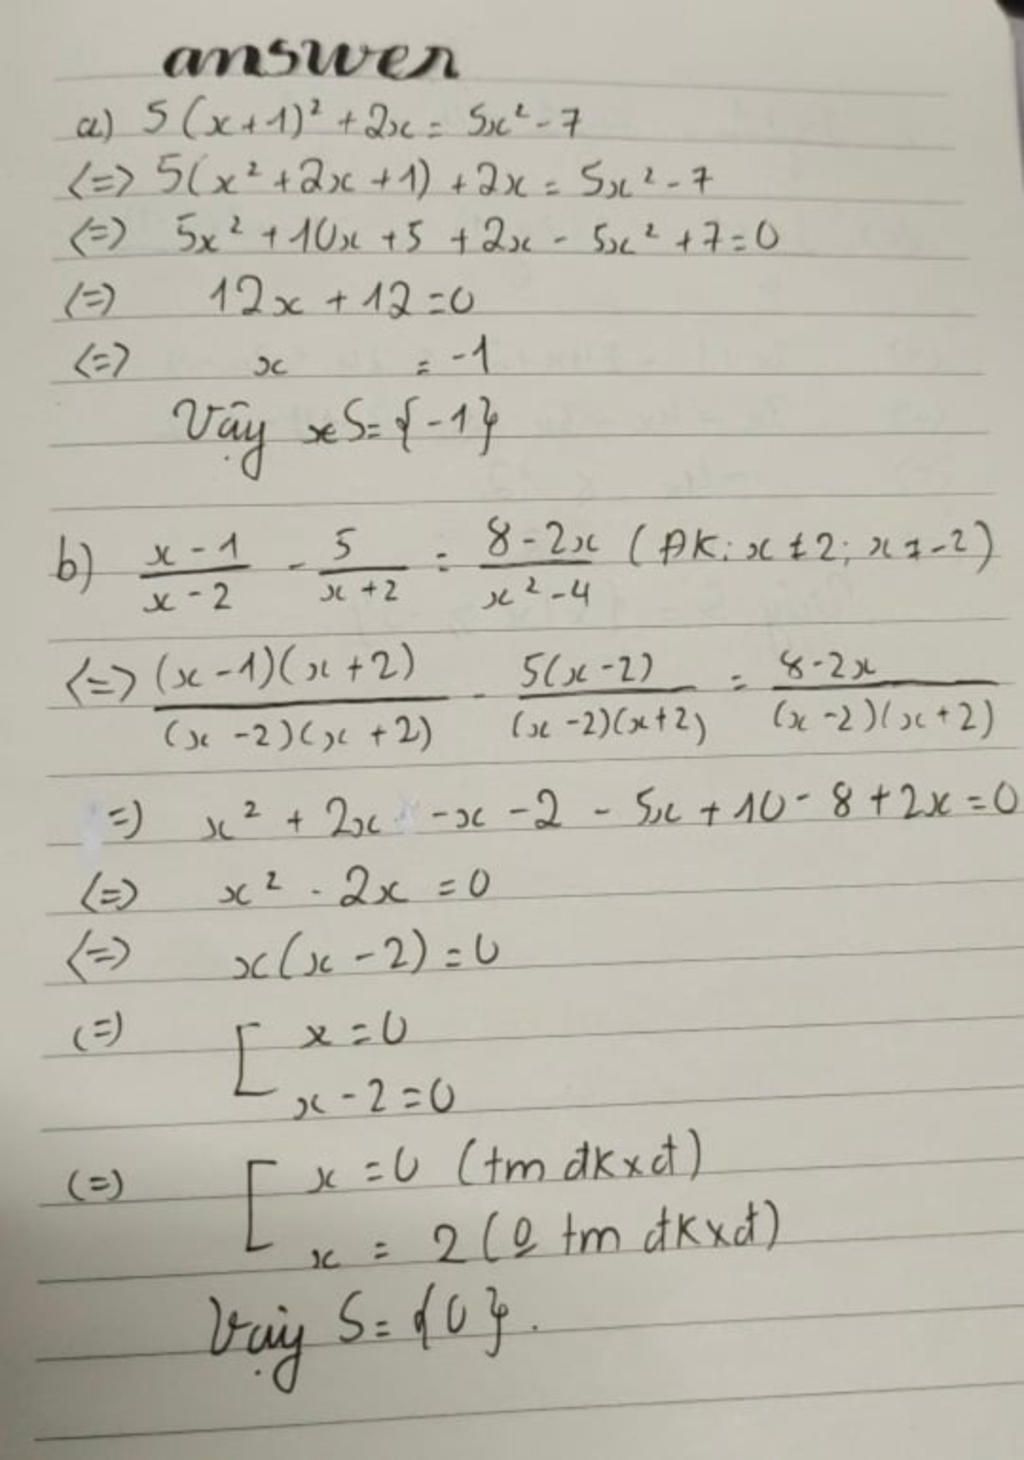 answer
a) 5(x+1)² + 2x = 5x² - 7
<=> 5(x² + 2x + 1) + 2x = 5x² - 7
<=> 5x² + 10x + 5 + 2x - 5x² + 7 = 0
(=) 12x + 12 = 0
<=> x = -1
Vậy S = {-1}
b) (x-1)/(x-2) - 5/(x+2) = (8-2x)/(x²-4) (ĐK: x ≠ 2; x ≠ -2)
<=> ((x-1)(x+2))/((x-2)(x+2)) - (5(x-2))/((x-2)(x+2)) = (8-2x)/((x-2)(x+2))
=) x² + 2x - x - 2 - 5x + 10 - 8 + 2x = 0
<=> x² - 2x = 0
<=> x(x-2) = 0
(=) [ x = 0
x - 2 = 0
(=) [ x = 0 (tm đkxđ)
x = 2 (o tm đkxđ)
Vậy S = {0}.